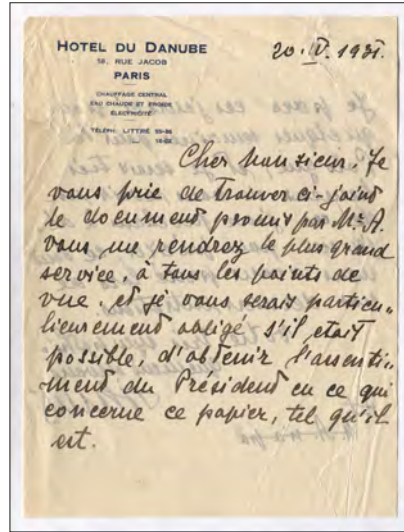 HOTEL DU DANUBE
58, RUE JACOB
PARIS
CHAUFFAGE CENTRAL
EAU CHAUDE ET FROIDE
ÉLECTRICITÉ
TÉLÉPH. LITTRÉ
20. IV. 1931.
Cher Monsieur, Je
vous prie de trouver ci-joint
le document promis par Mr A.
vous me rendrez le plus grand
service, à tous les points de
vue, et je vous serais particu„
lièrement obligé s'il était
possible, d'obtenir l'assenti„
ment du Président en ce qui
concerne ce papier, tel qu'il
est.